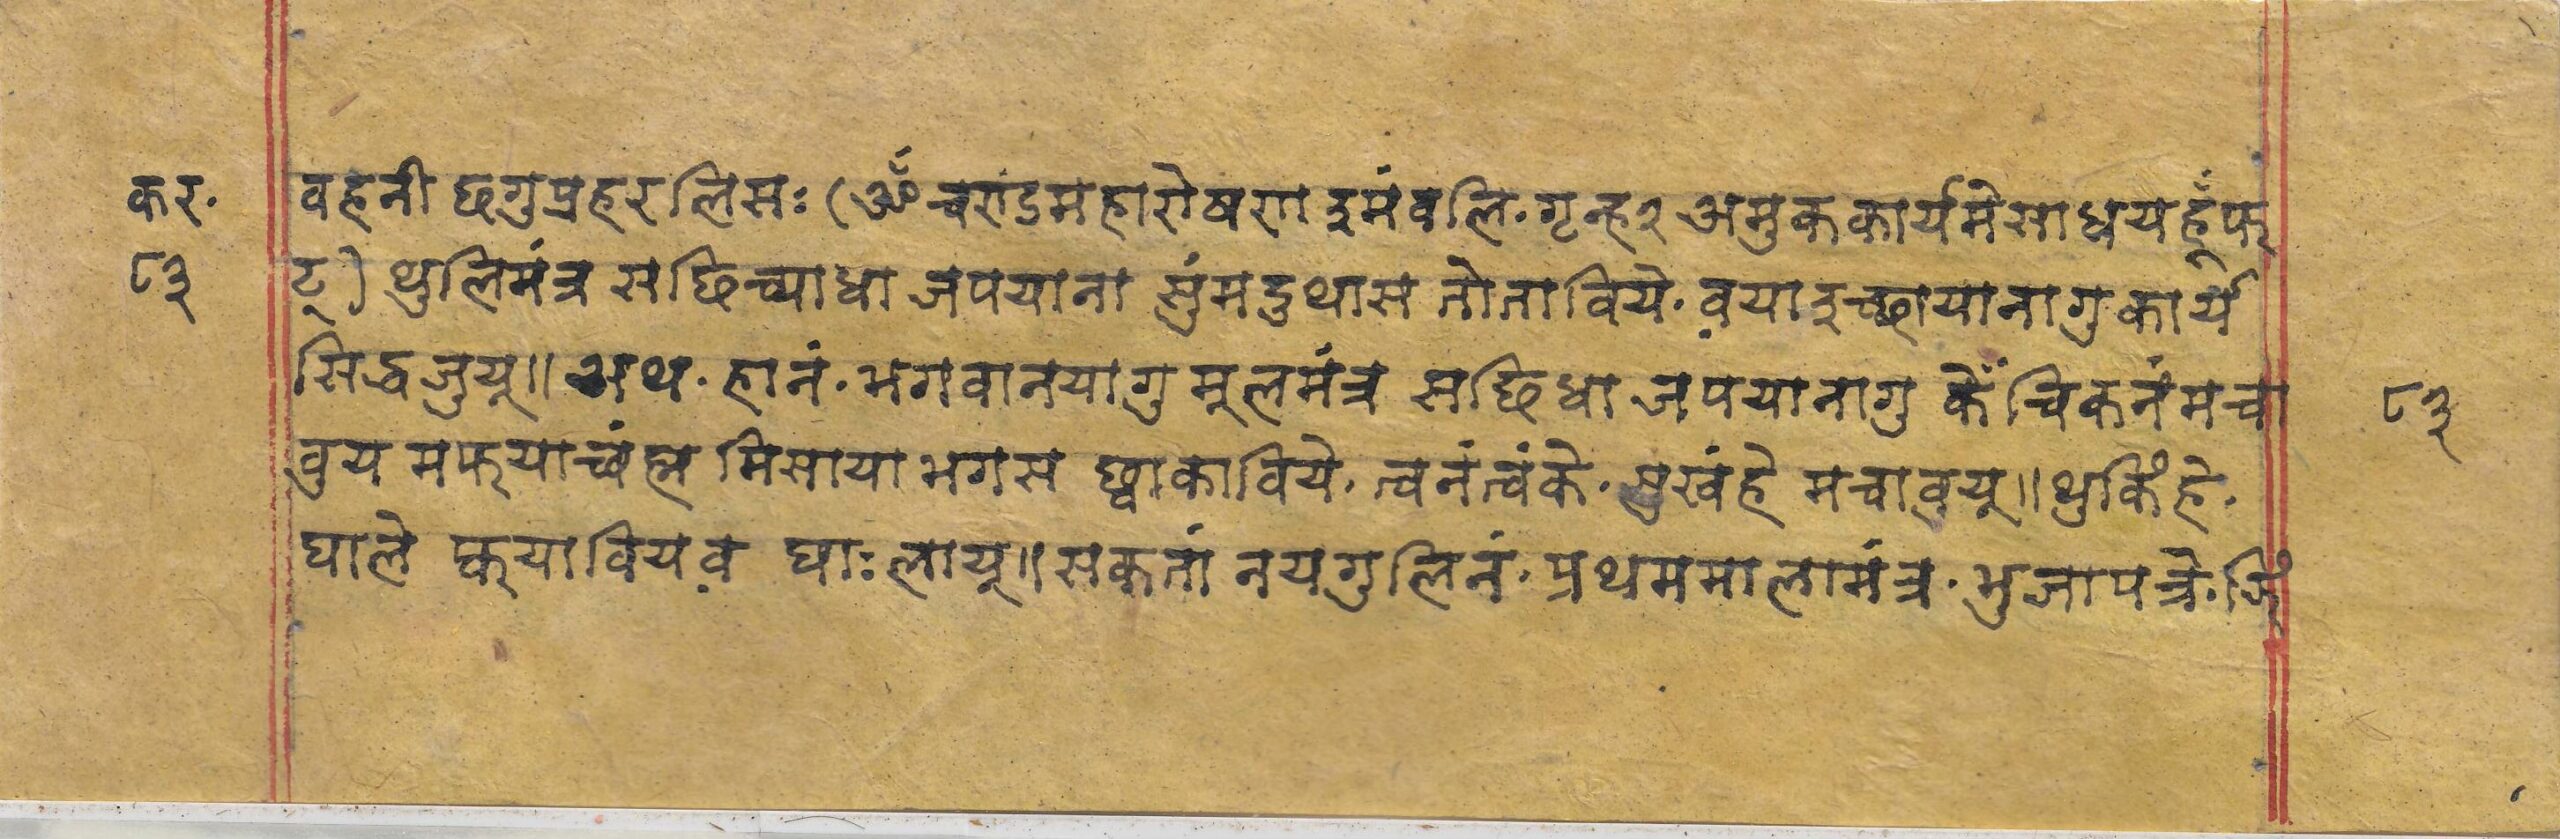 कर. वहनी छगु प्रहर लिमः (ॐ चण्डमहारोषण इमं वलि. गृन्ह२ अमुककार्यमे साधय हूँ फ्
८३ ट्) थुलि मंत्र सछि च्याधा जपयाना सुंमदुथास तोताविये. व़या इच्छायानागु कार्य
सिद्ध जुयू॥ अथ. हानं. भगवानयागु मूलमंत्र सछिधा जपयानागु केँ चिकनं मचा ८३
वुय मफयाच्वंह्म मिसाया भगस छ्वाकाविये. त्वनंत्वंके. सुखंहे मचावुयू॥ थुकिंहे.
घाले फ्कयाविय व़ घाःलायू॥ सकतां नयगुलिनं. प्रथम मालामंत्र. भुजापत्रे.